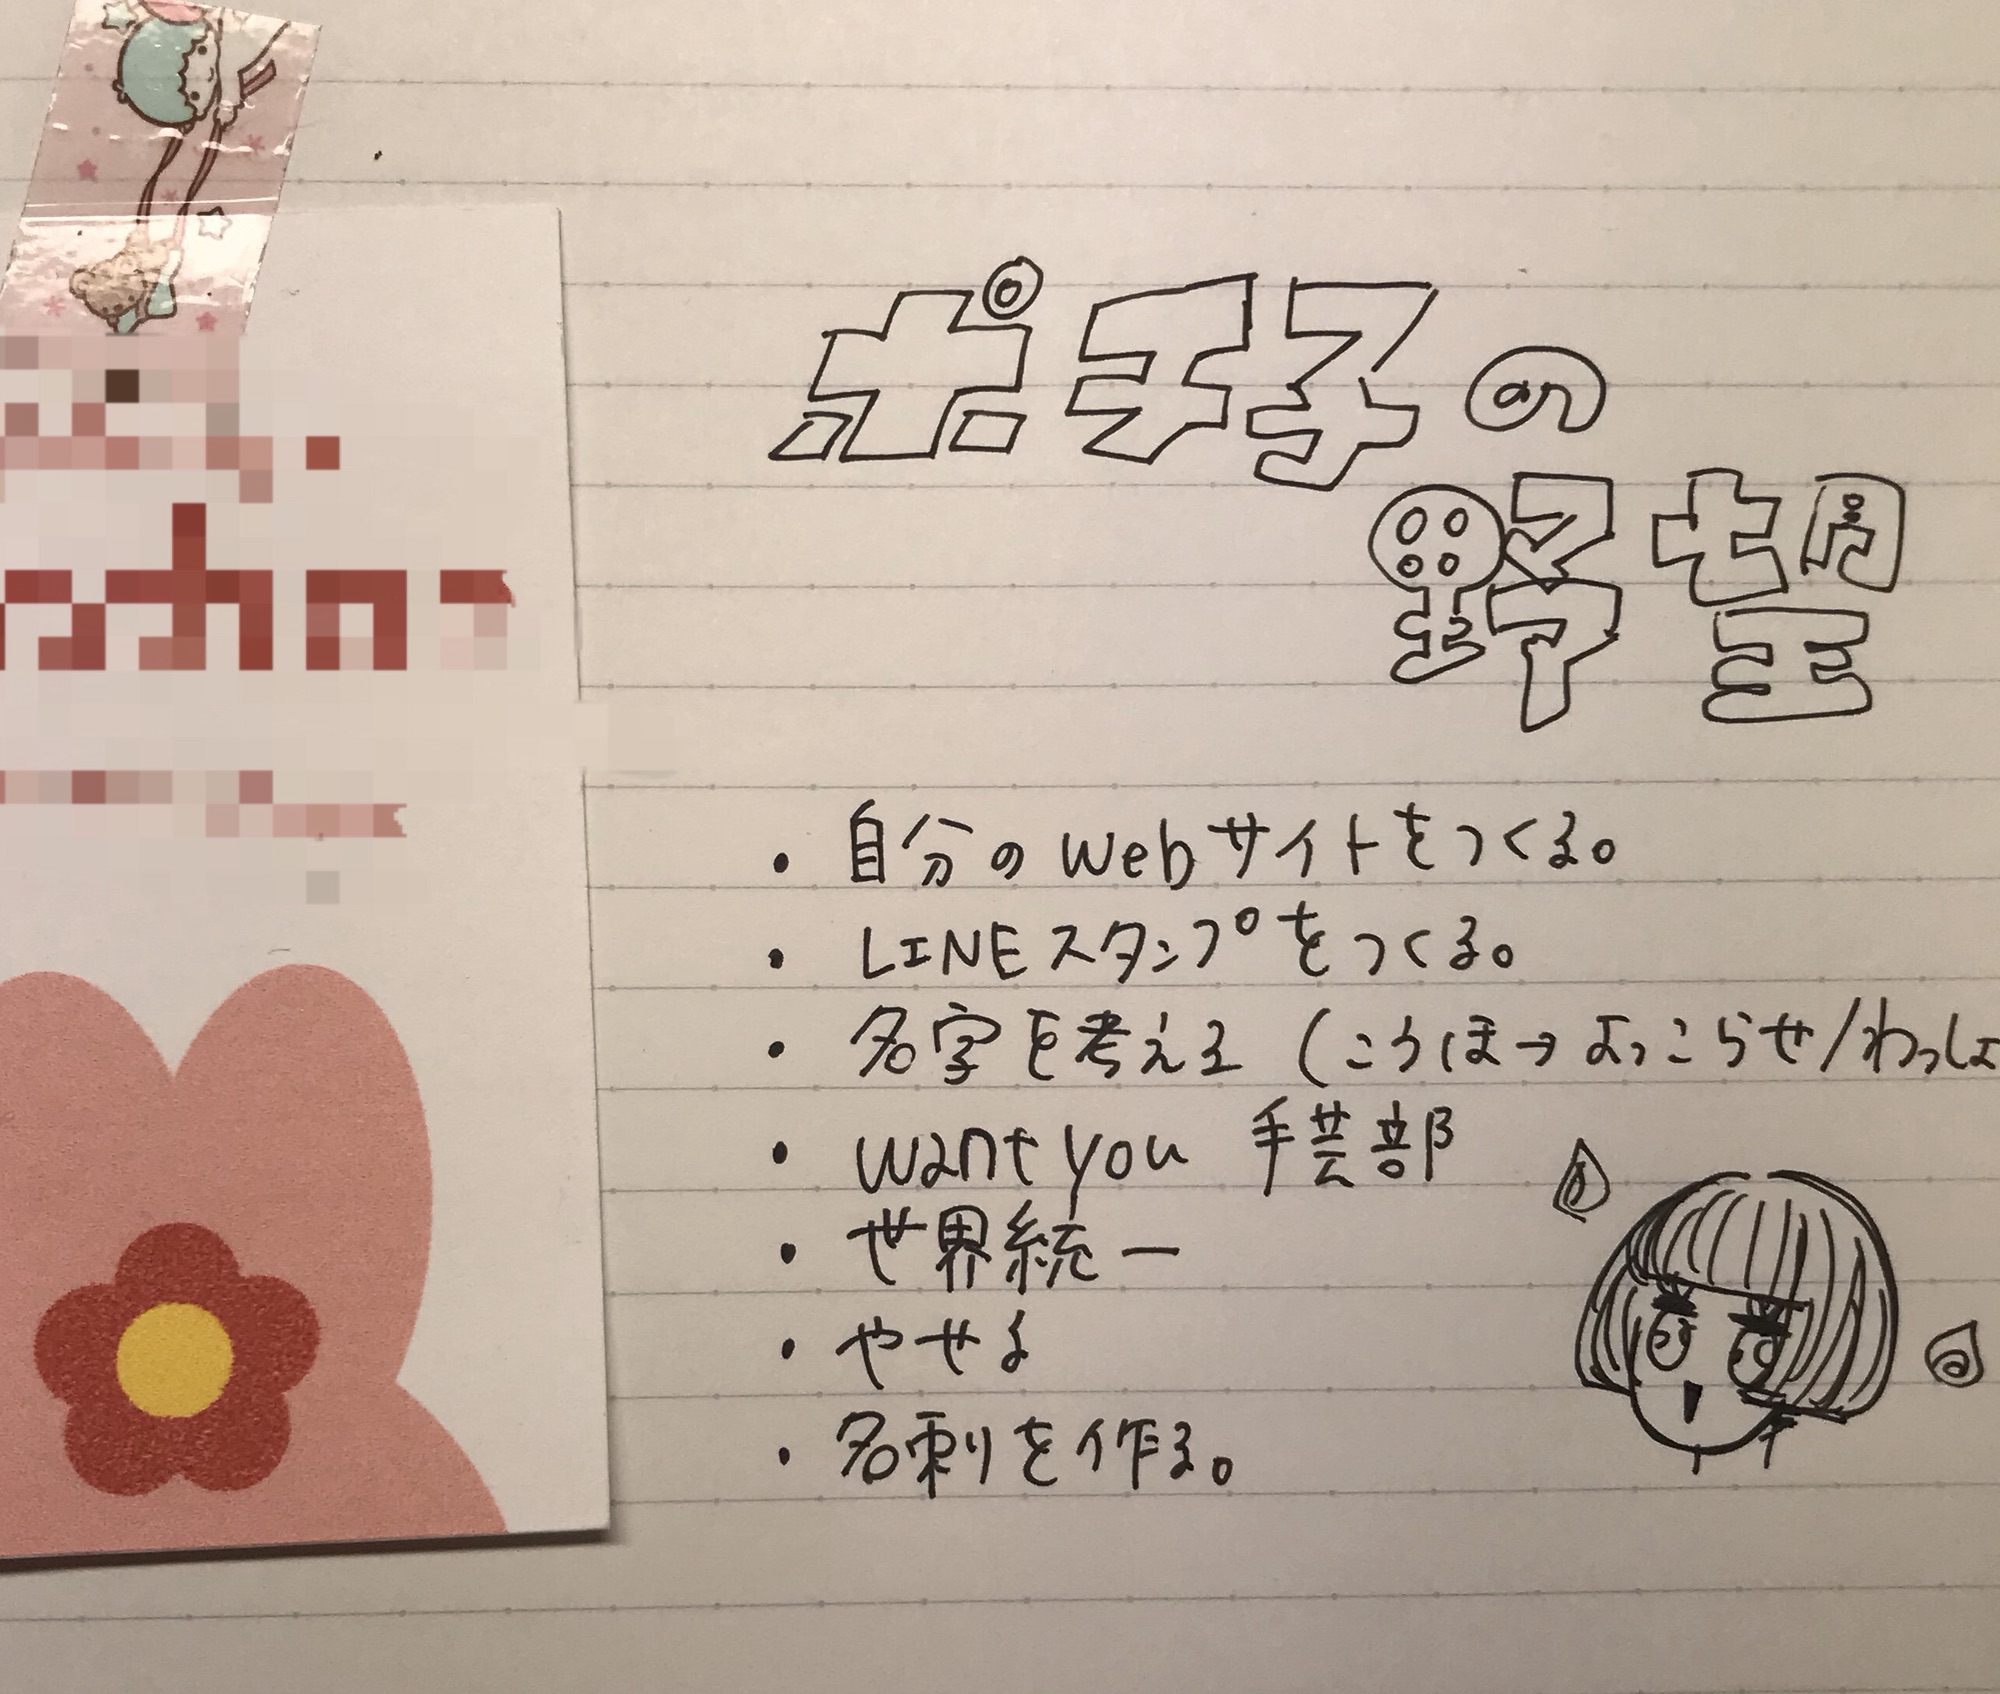 ポチ子の
野望
・自分のWebサイトをつくる。
・LINEスタンプをつくる。
・名字を考える（こうほ→よっこらせ/わっしょ
・want you 手芸部
・世界統一
・やせる
・名刺を作る。